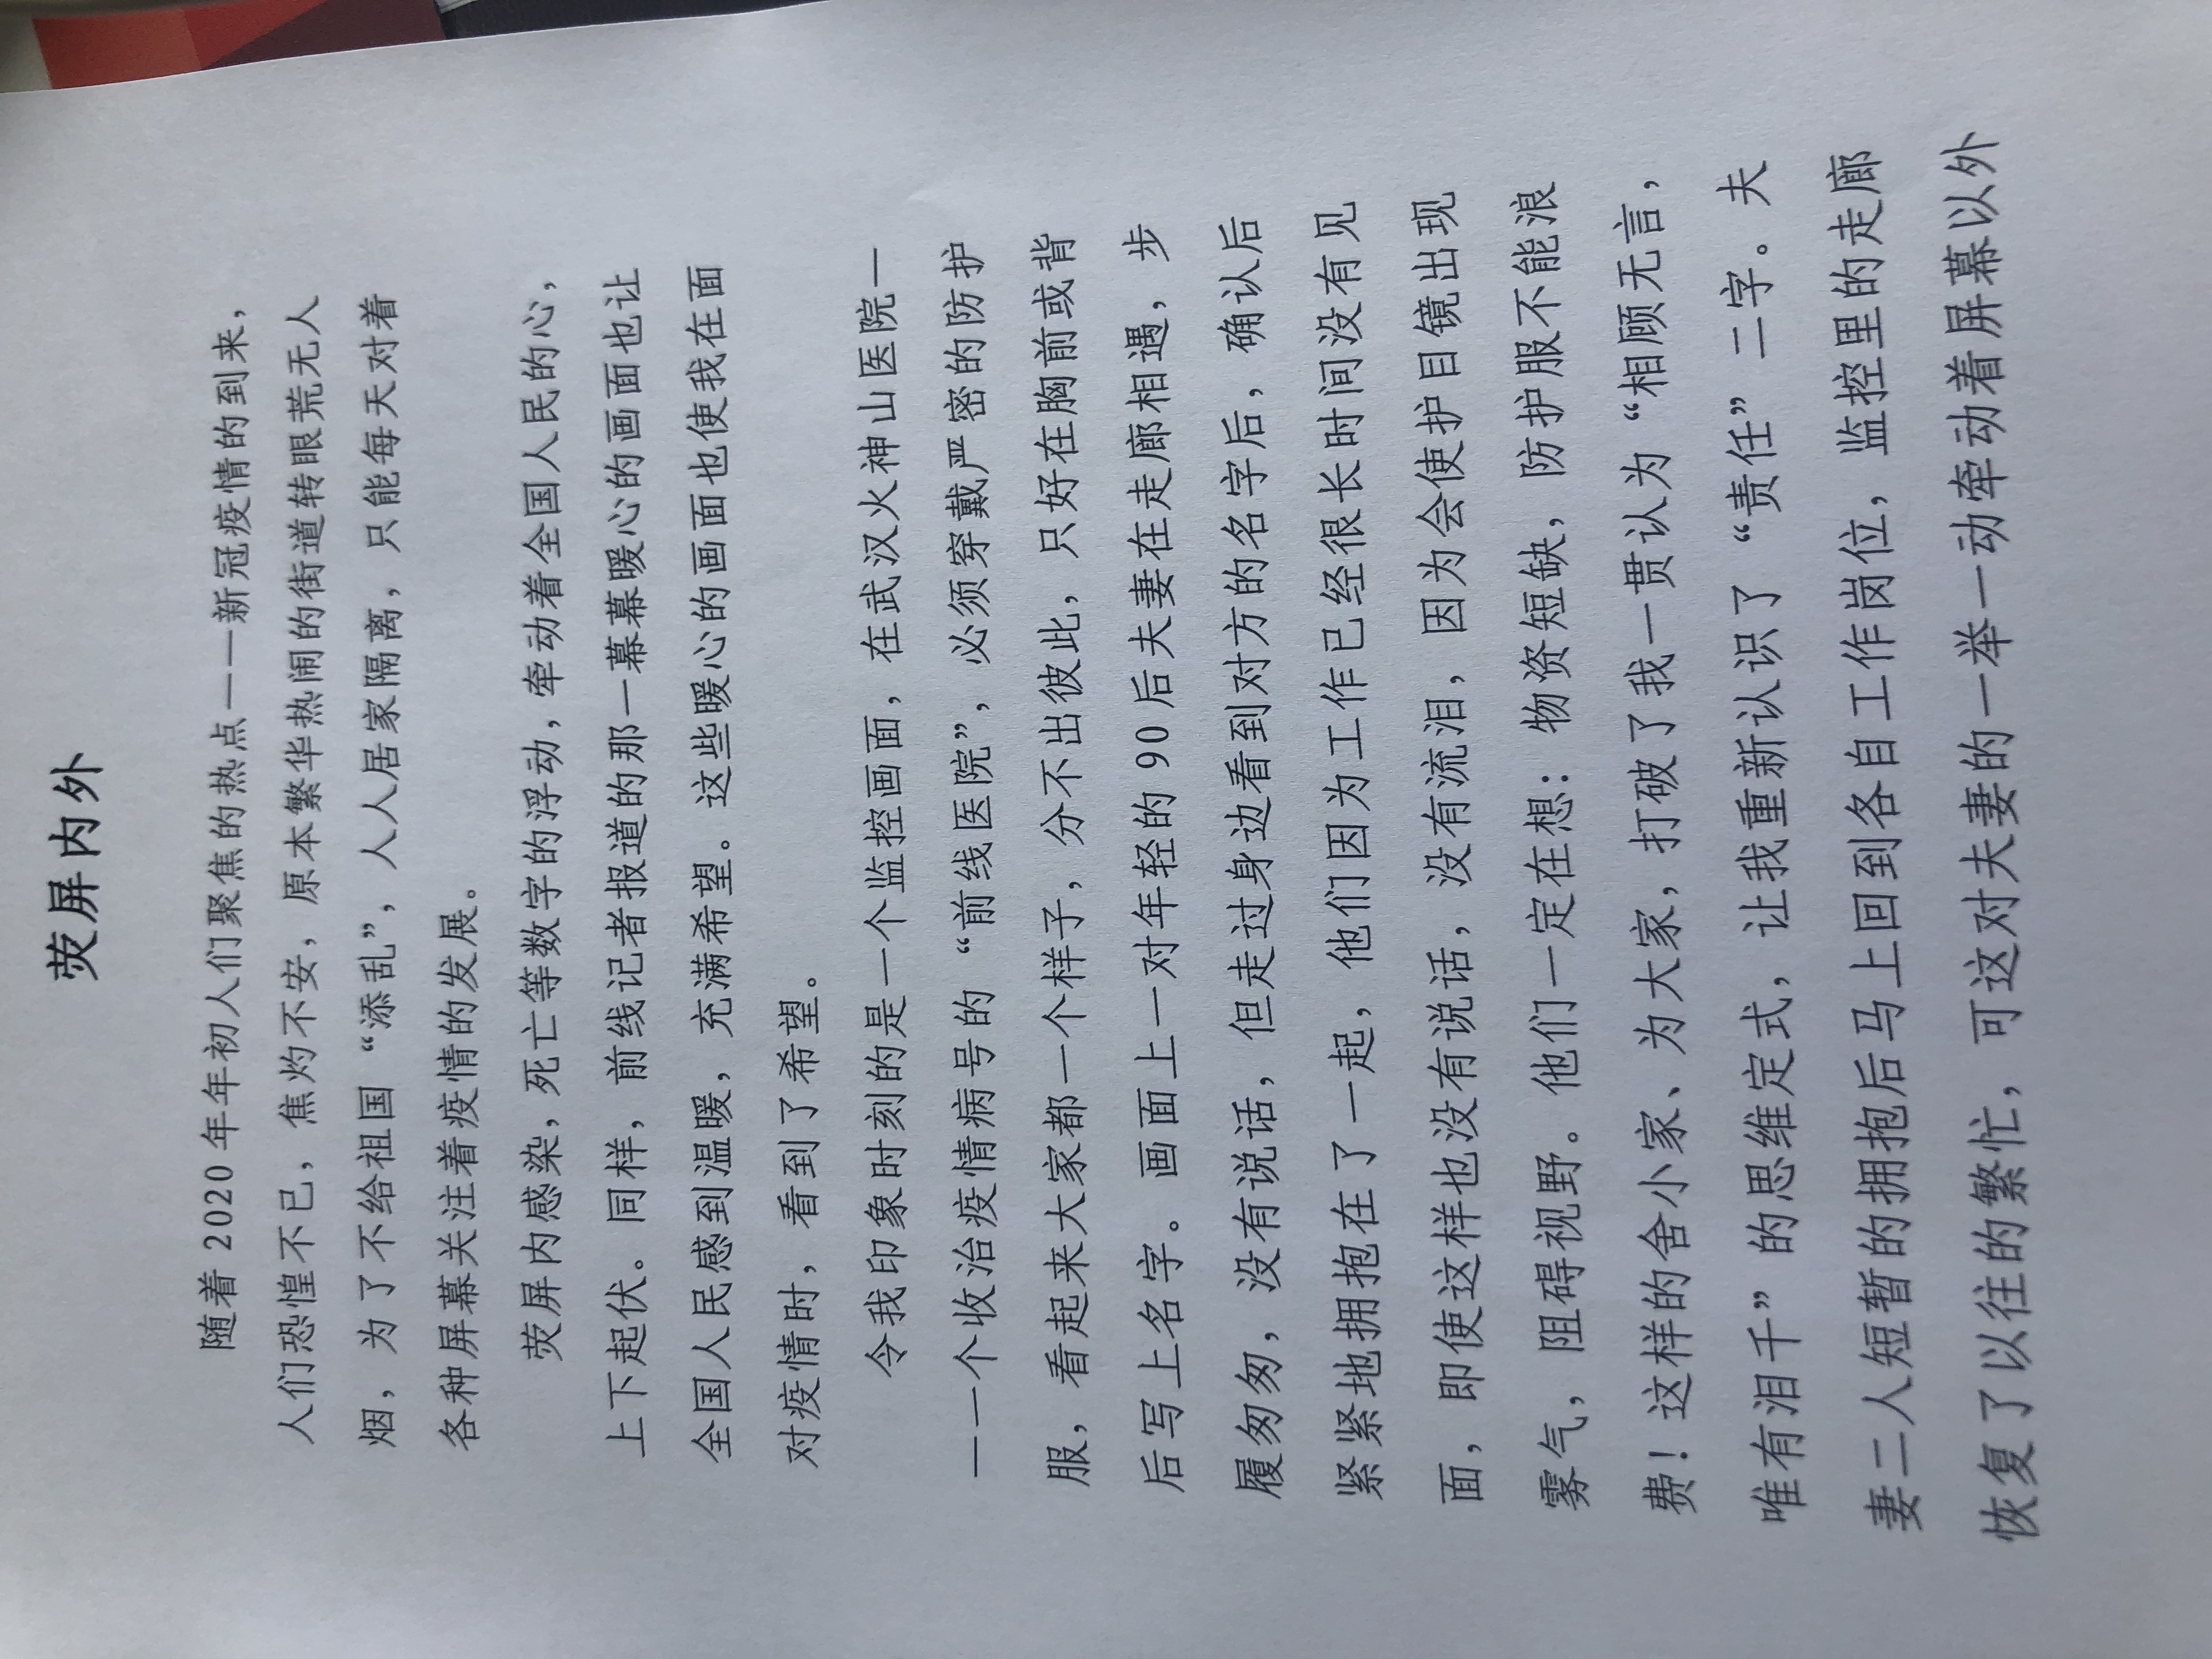 荧屏内外
随着 2020 年年初人们聚焦的热点——新冠疫情的到来，
人们恐惶不已，焦灼不安，原本繁华热闹的街道转眼荒无人
烟，为了不给祖国“添乱”，人人居家隔离，只能每天对着
各种屏幕关注着疫情的发展。
荧屏内感染，死亡等数字的浮动，牵动着全国人民的心，
上下起伏。同样，前线记者报道的那一幕幕暖心的画面也让
全国人民感到温暖，充满希望。这些暖心的画面也使我在面
对疫情时，看到了希望。
令我印象时刻的是一个监控画面，在武汉火神山医院—
—一个收治疫情病号的“前线医院”，必须穿戴严密的防护
服，看起来大家都一个样子，分不出彼此，只好在胸前或背
后写上名字。画面上一对年轻的 90 后夫妻在走廊相遇，步
履匆匆，没有说话，但走过身边看到对方的名字后，确认后
紧紧地拥抱在了一起，他们因为工作已经很长时间没有见
面，即使这样也没有说话，没有流泪，因为会使护目镜出现
雾气，阻碍视野。他们一定在想：物资短缺，防护服不能浪
费！这样的舍小家、为大家，打破了我一贯认为“相顾无言，
唯有泪千”的思维定式，让我重新认识了“责任”二字。夫
妻二人短暂的拥抱后马上回到各自工作岗位，监控里的走廊
恢复了以往的繁忙，可这对夫妻的一举一动牵动着屏幕以外